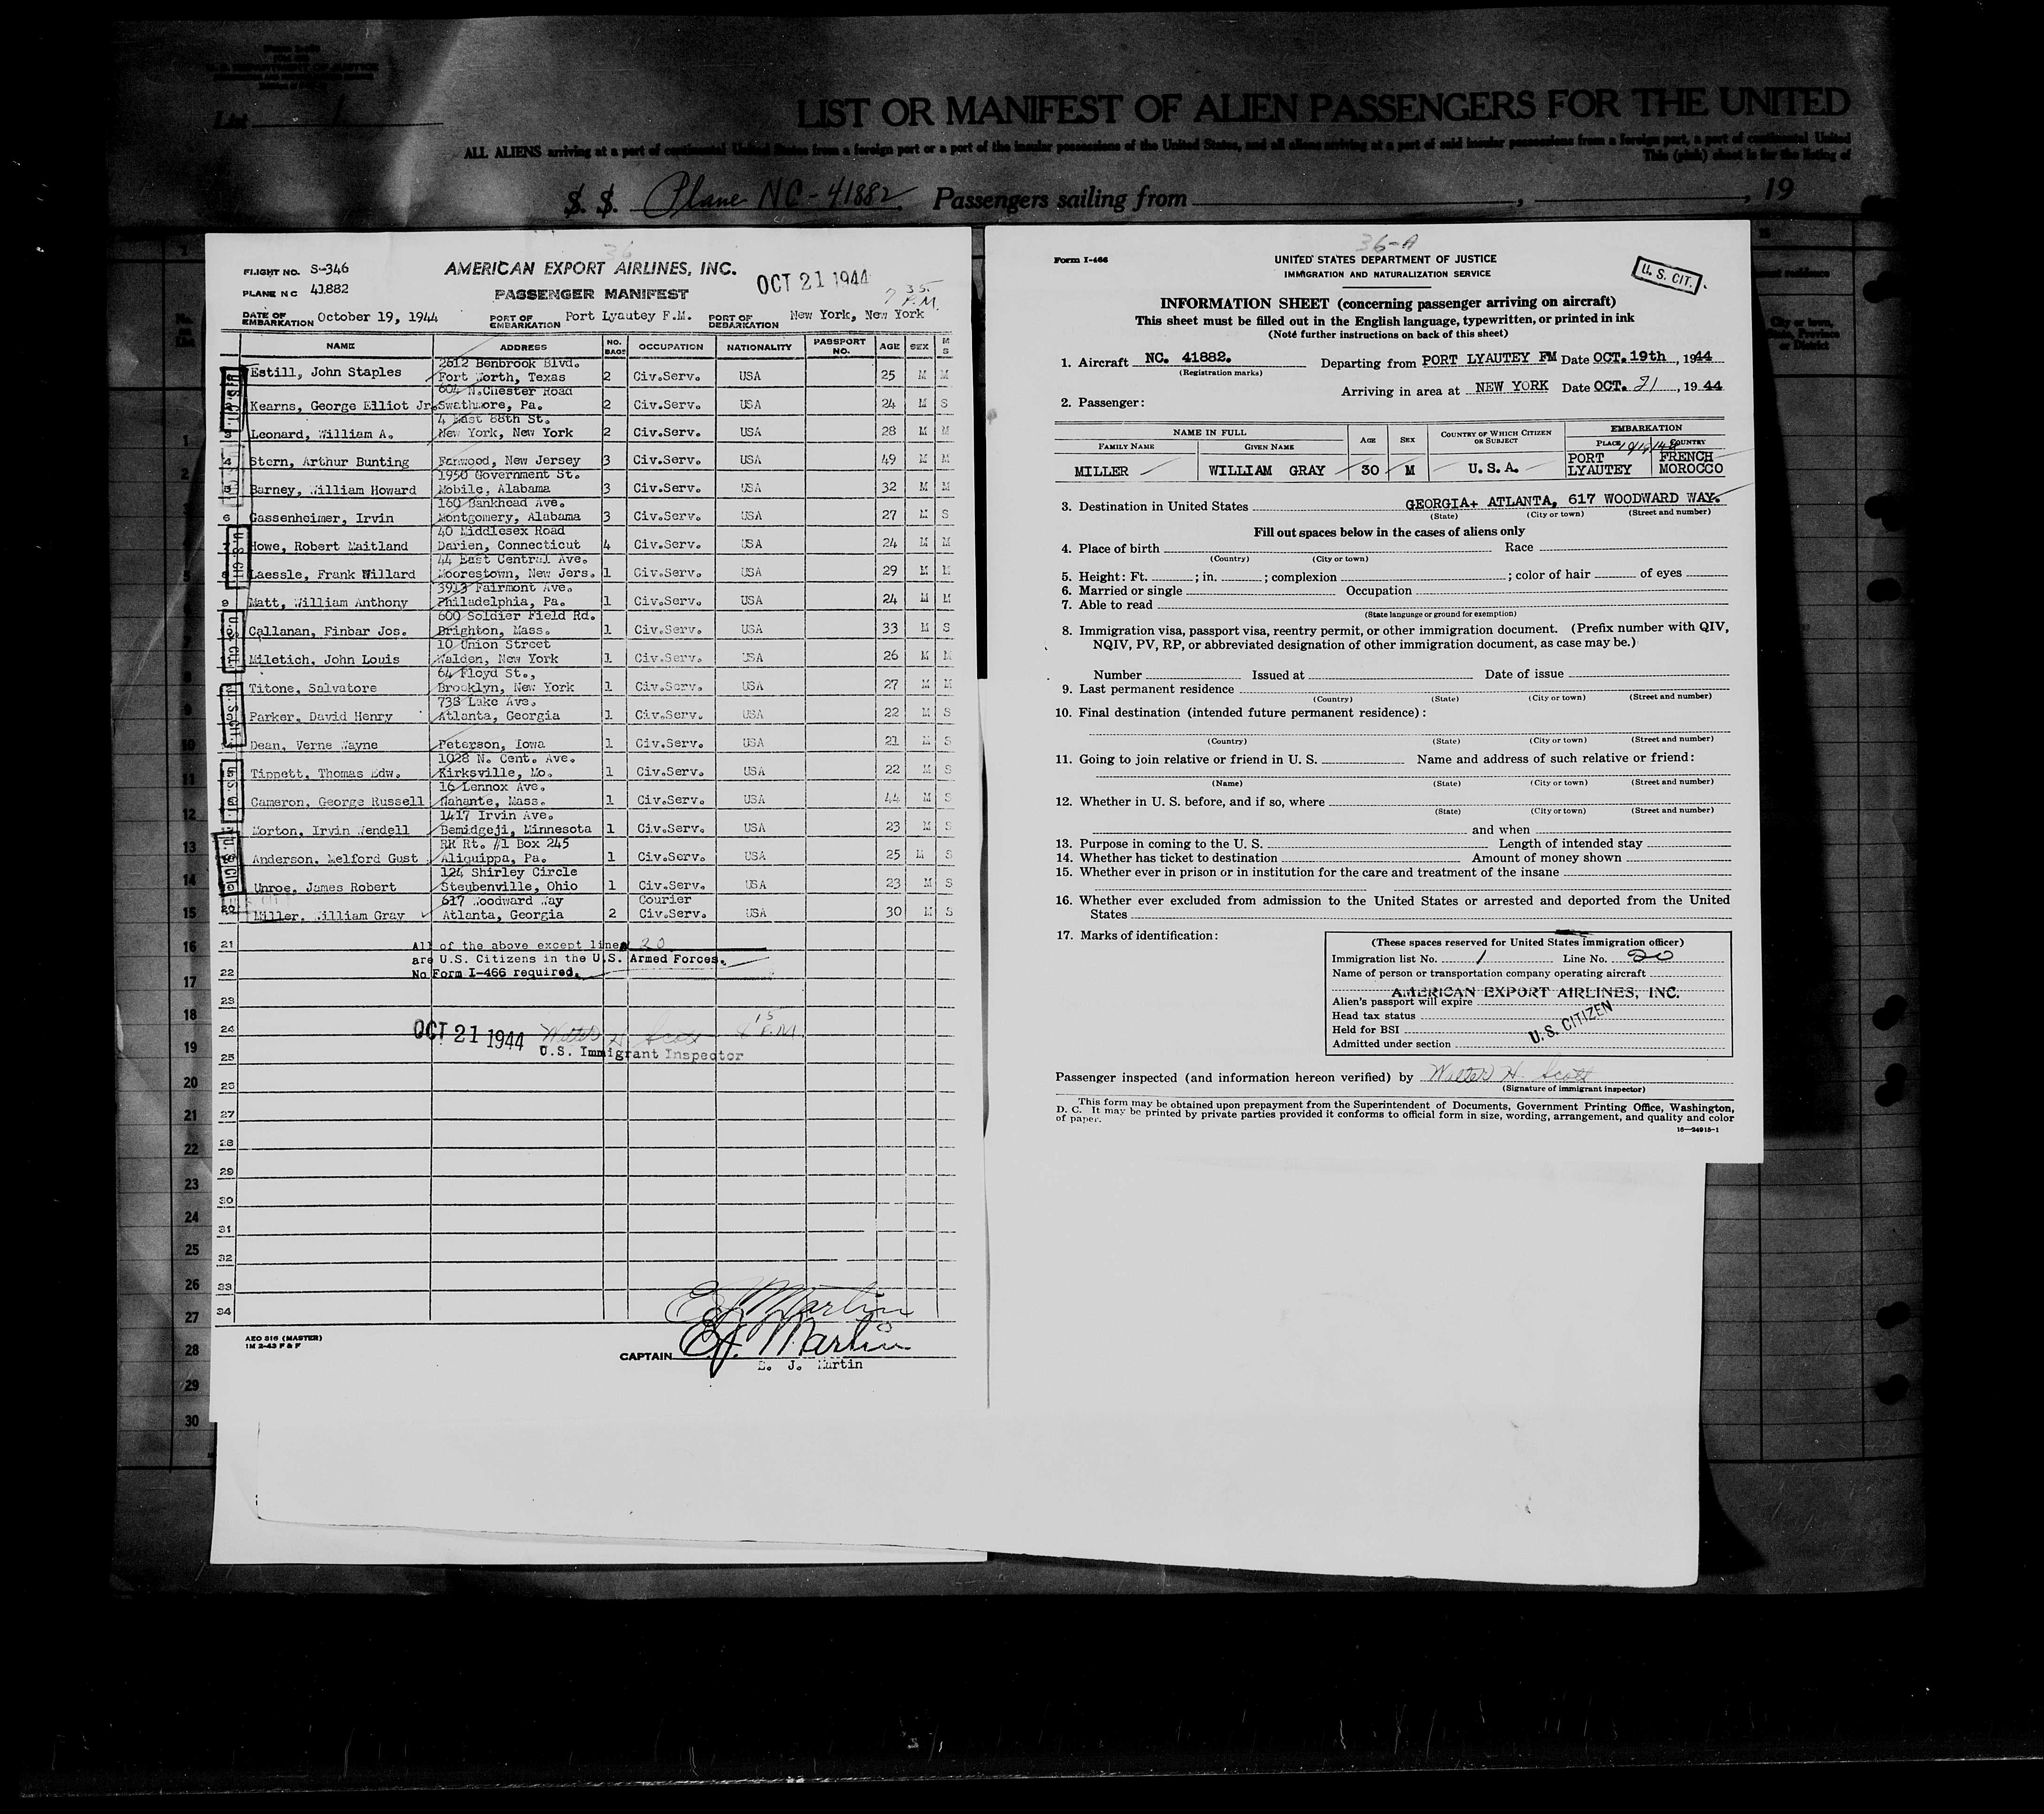 List 1
LIST OR MANIFEST OF ALIEN PASSENGERS FOR THE UNITED
ALL ALIENS arriving at a port of continental United States from a foreign port or a port of the insular possessions of the United States, and all aliens arriving at a port of said insular possessions from a foreign port, a port of continental United
This (pink) sheet is for the listing of
S. S. Plane NC-41882 Passengers sailing from , , 19
36
FLIGHT NO. S-346
AMERICAN EXPORT AIRLINES, INC.
OCT 21 1944
PLANE NC 41882
PASSENGER MANIFEST
7 35 P.M.
DATE OF EMBARKATION October 19, 1944 PORT OF EMBARKATION Port Lyautey F.M. PORT OF DEBARKATION New York, New York
NAME ADDRESS NO. BAGS OCCUPATION NATIONALITY PASSPORT NO. AGE SEX M S
2612 Benbrook Blvd.
Estill, John Staples Fort Worth, Texas 2 Civ.Serv. USA 25 M M
604 N.Chester Road
Kearns, George Elliot Jr. Swathmore, Pa. 2 Civ.Serv. USA 24 M S
4 East 88th St.
3 Leonard, William A. New York, New York 2 Civ.Serv. USA 28 M M
4 Stern, Arthur Bunting Fanwood, New Jersey 3 Civ.Serv. USA 49 M M
1950 Government St.
5 Barney, William Howard Mobile, Alabama 3 Civ.Serv. USA 32 M M
160 Bankhead Ave.
6 Gassenheimer, Irvin Montgomery, Alabama 3 Civ.Serv. USA 27 M S
40 Middlesex Road
Howe, Robert Maitland Darien, Connecticut 4 Civ.Serv. USA 24 M M
44 East Central Ave.
Laessle, Frank Willard Moorestown, New Jers. 1 Civ.Serv. USA 29 M M
3913 Fairmont Ave.
9 Matt, William Anthony Philadelphia, Pa. 1 Civ.Serv. USA 24 M M
600 Soldier Field Rd.
Callanan, Finbar Jos. Brighton, Mass. 1 Civ.Serv. USA 33 M S
10 Union Street
Miletich, John Louis Walden, New York 1 Civ.Serv. USA 26 M M
64 Floyd St.,
Titone, Salvatore Brooklyn, New York 1 Civ.Serv. USA 27 M M
738 Lake Ave.
Parker, David Henry Atlanta, Georgia 1 Civ.Serv. USA 22 M S
Dean, Verne Wayne Peterson, Iowa 1 Civ.Serv. USA 21 M S
1028 N. Cent. Ave.
Tippett, Thomas Edw. Kirksville, Mo. 1 Civ.Serv. USA 22 M S
16 Lennox Ave.
Cameron, George Russell Nahante, Mass. 1 Civ.Serv. USA 44 M S
1417 Irvin Ave.
Morton, Irvin Wendell Bemidgeji, Minnesota 1 Civ.Serv. USA 23 M S
RR Rt. #1 Box 245
Anderson, Melford Gust Aliquippa, Pa. 1 Civ.Serv. USA 25 M S
124 Shirley Circle
Unroe, James Robert Steubenville, Ohio 1 Civ.Serv. USA 23 M S
617 Woodward Way Courier
20 Miller, William Gray Atlanta, Georgia 2 Civ.Serv. USA 30 M S
21 All of the above except line 20
are U.S. Citizens in the U.S. Armed Forces.
22 No Form I-466 required.
23
24 OCT 21 1944 Walter H. Scott 8 15 P.M.
25 U.S. Immigrant Inspector
26
27
28
29
30
31
32
33
34
E J Martin
AEO 316 (MASTER)
1M 2-43 P & F
CAPTAIN E. J. Martin
E. J. Martin
36-A
Form I-466
UNITED STATES DEPARTMENT OF JUSTICE
IMMIGRATION AND NATURALIZATION SERVICE
U. S. CIT.
INFORMATION SHEET (concerning passenger arriving on aircraft)
This sheet must be filled out in the English language, typewritten, or printed in ink
(Note further instructions on back of this sheet)
1. Aircraft NC. 41882. Departing from PORT LYAUTEY FM Date OCT. 19th, 1944
(Registration marks)
Arriving in area at NEW YORK Date OCT. 21, 1944
2. Passenger:
NAME IN FULL AGE SEX COUNTRY OF WHICH CITIZEN OR SUBJECT EMBARKATION
FAMILY NAME GIVEN NAME PLACE COUNTRY
MILLER WILLIAM GRAY 30 M U.S.A. PORT LYAUTEY FRENCH MOROCCO
3. Destination in United States GEORGIA+ ATLANTA, 617 WOODWARD WAY.
(State) (City or town) (Street and number)
Fill out spaces below in the cases of aliens only
4. Place of birth Race
(Country) (City or town)
5. Height: Ft. ; in. ; complexion ; color of hair of eyes
6. Married or single Occupation
7. Able to read
(State language or ground for exemption)
8. Immigration visa, passport visa, reentry permit, or other immigration document. (Prefix number with QIV,
NQIV, PV, RP, or abbreviated designation of other immigration document, as case may be.)
Number Issued at Date of issue
9. Last permanent residence
(Country) (State) (City or town) (Street and number)
10. Final destination (intended future permanent residence):
(Country) (State) (City or town) (Street and number)
11. Going to join relative or friend in U. S. Name and address of such relative or friend:
(Name) (State) (City or town) (Street and number)
12. Whether in U. S. before, and if so, where
(State) (City or town) (Street and number)
and when
13. Purpose in coming to the U. S. Length of intended stay
14. Whether has ticket to destination Amount of money shown
15. Whether ever in prison or in institution for the care and treatment of the insane
16. Whether ever excluded from admission to the United States or arrested and deported from the United
States
17. Marks of identification:
(These spaces reserved for United States immigration officer)
Immigration list No. 1 Line No. 20
Name of person or transportation company operating aircraft
AMERICAN EXPORT AIRLINES, INC.
Alien's passport will expire
Head tax status
Held for BSI
U. S. CITIZEN
Admitted under section
Passenger inspected (and information hereon verified) by Walter H. Scott
(Signature of immigrant inspector)
This form may be obtained upon prepayment from the Superintendent of Documents, Government Printing Office, Washington,
D. C. It may be printed by private parties provided it conforms to official form in size, wording, arrangement, and quality and color
of paper.
16—24915-1